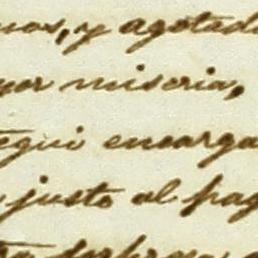 nos, y agotad
yor miseria,
egui encarga
justo al pag